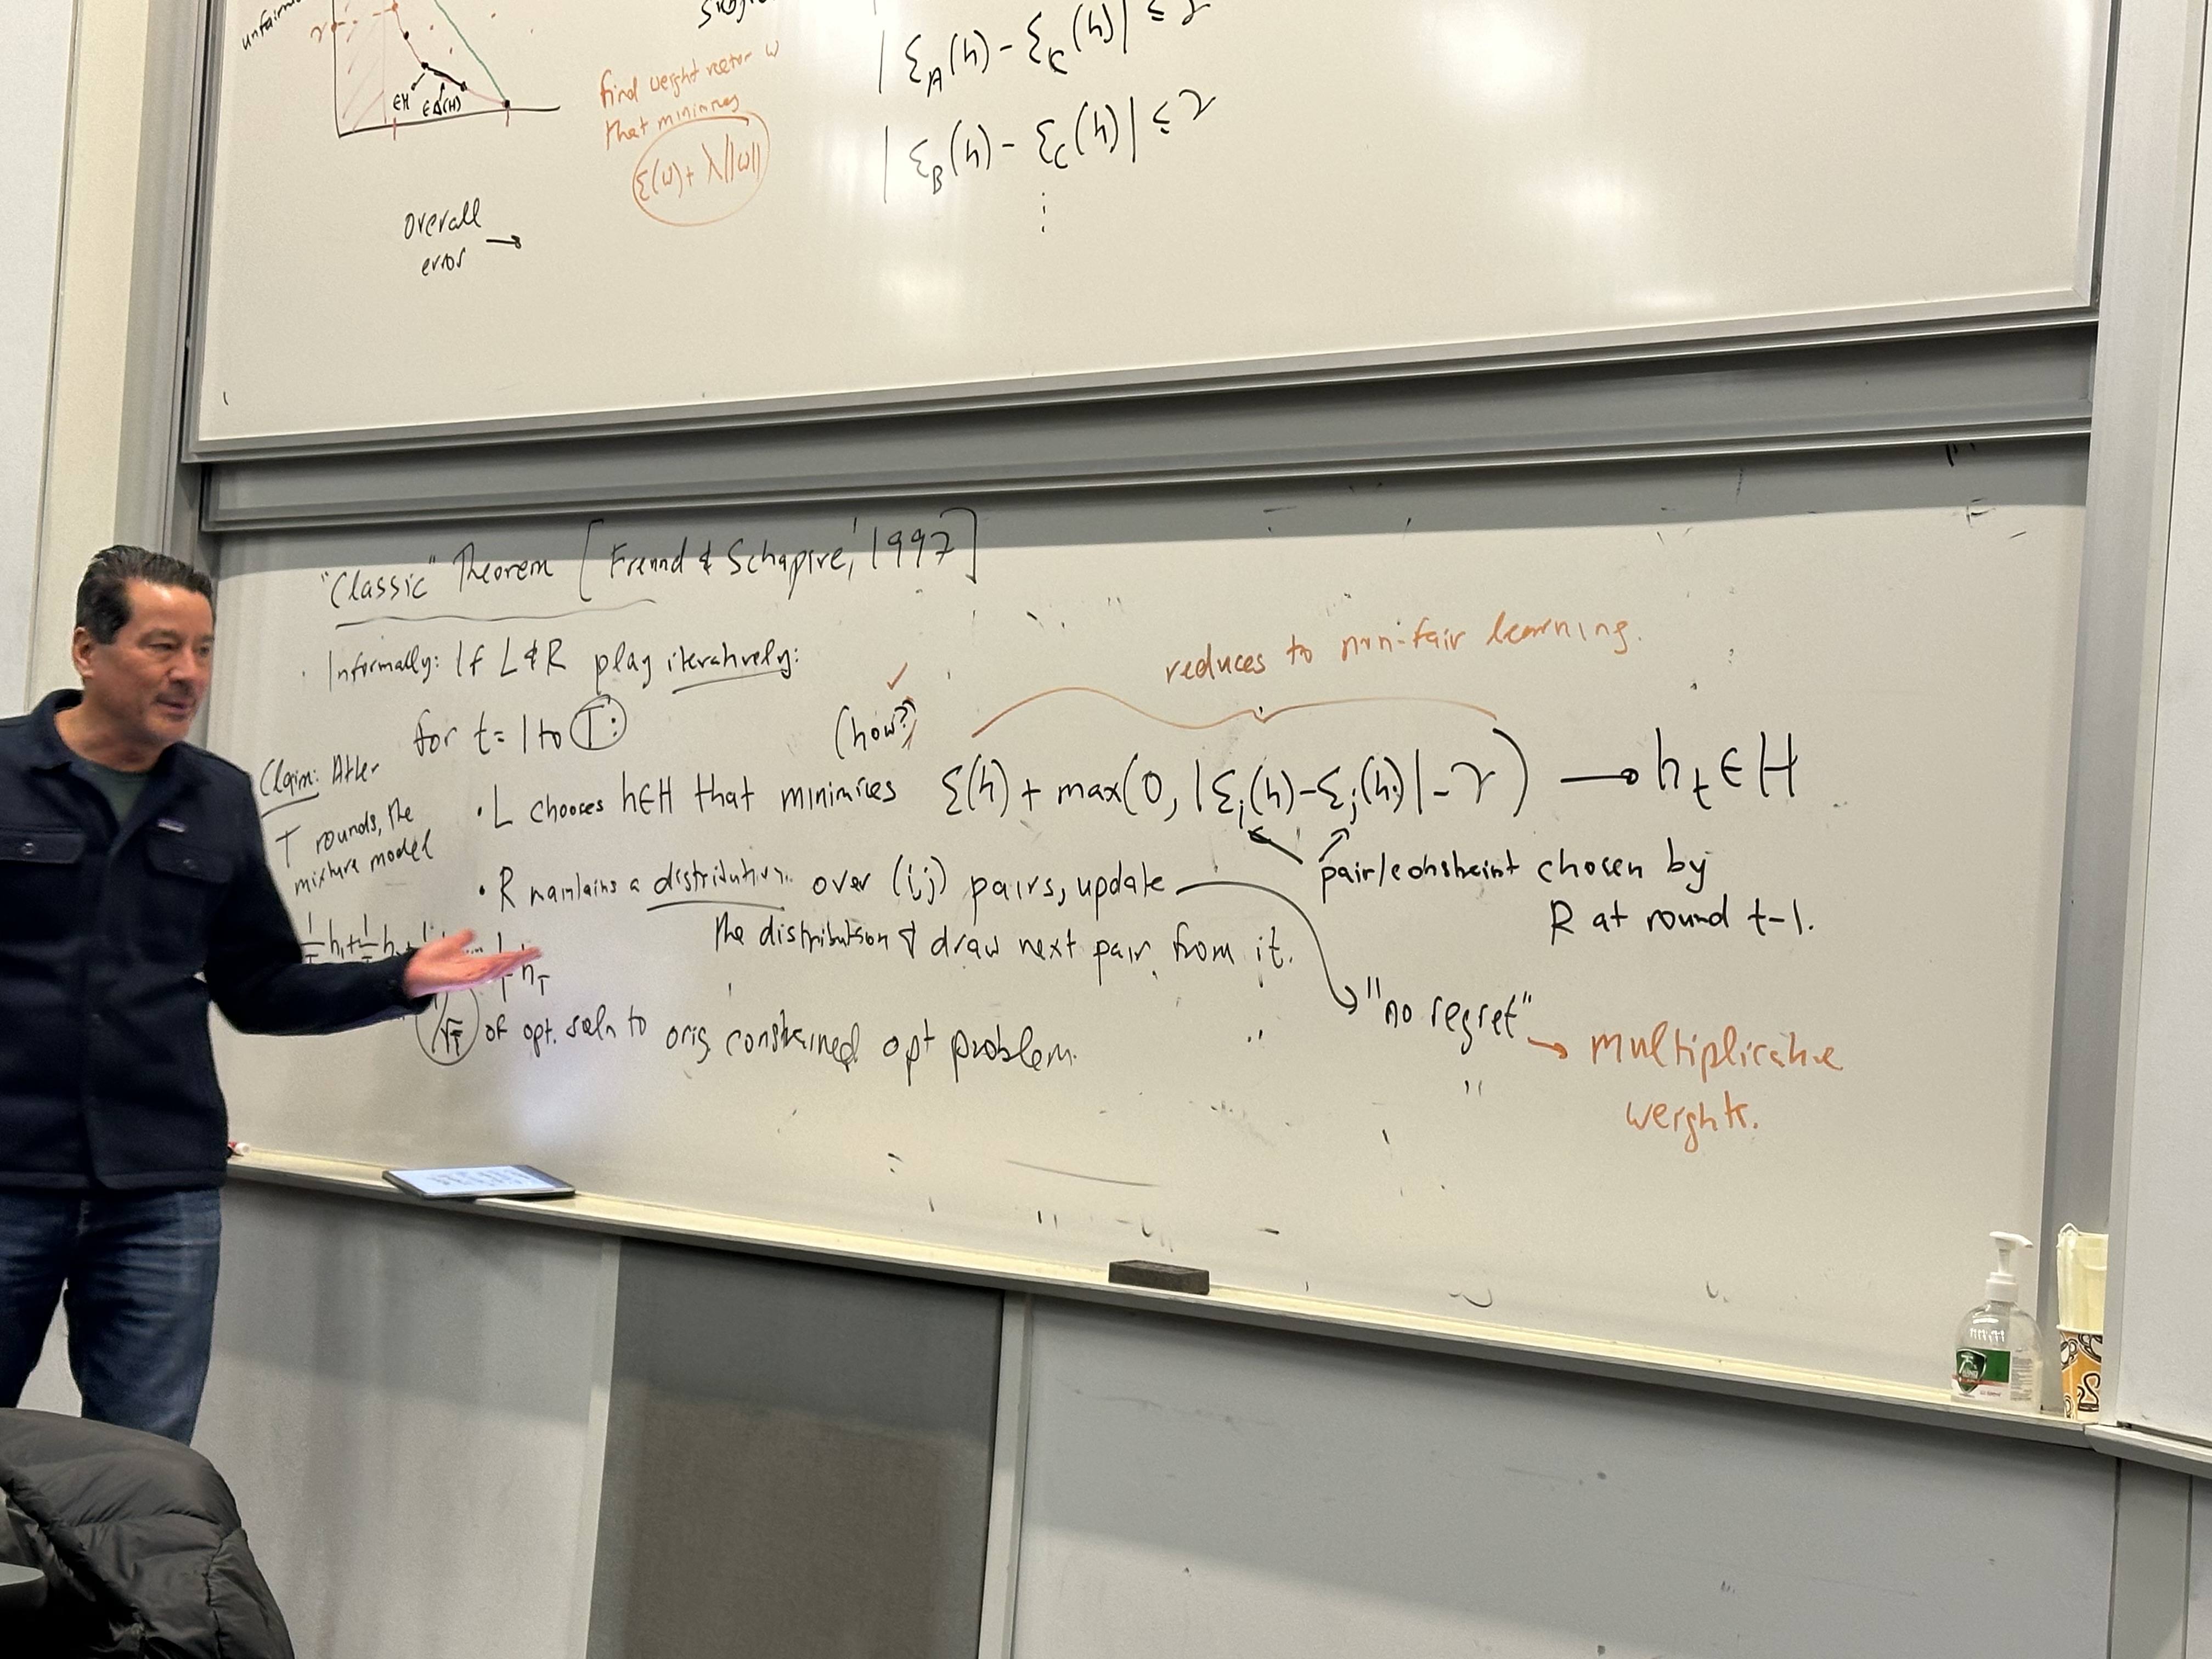 γ
∈H ∈Δ(H)
Overall
error →
find weight vector w
that minimizes
ε(w) + λ||w||
| ε_A(h) - ε_C(h) | ≤ γ
| ε_B(h) - ε_C(h) | ≤ γ
⋮
"Classic" Theorem [Freund & Schapire, 1997]
Informally: If L & R play iteratively:
for t = 1 to T:
(how?) ✓
reduces to non-fair learning.
• L chooses h∈H that minimizes ε(h) + max(0, |ε_i(h) - ε_j(h)| - γ) → h_t ∈ H
pair/constraint chosen by
R at round t-1.
• R maintains a distribution over (i,j) pairs, update
the distribution & draw next pair from it.
"no regret" → multiplicative
weights.
Claim: After
T rounds, the
mixture model
h_1 + h_T
√T of opt. soln to orig constrained opt problem.